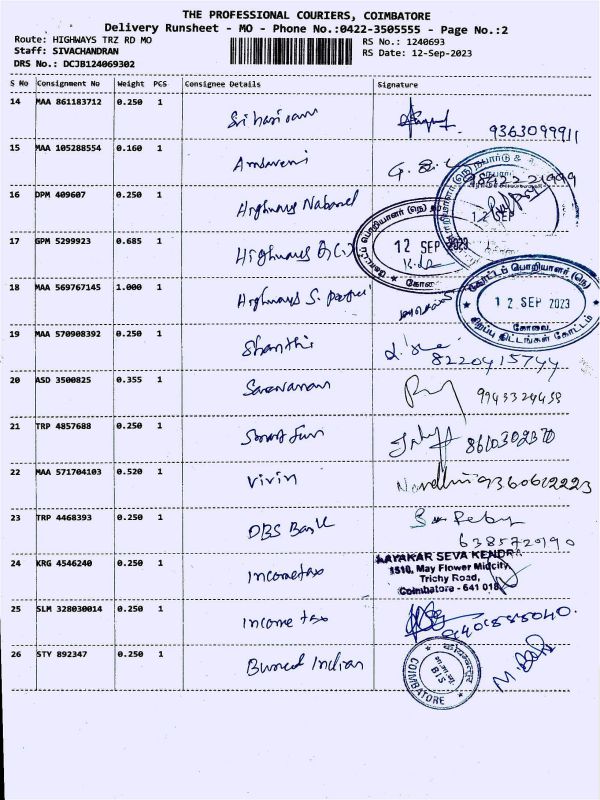 THE PROFESSIONAL COURIERS, COIMBATORE
Delivery Runsheet - MO - Phone No.:0422-3505555 - Page No.:2
Route: HIGHWAYS TRZ RD MO
RS No.: 1240693
Staff: SIVACHANDRAN
RS Date: 12-Sep-2023
DRS No.: DCJB124069302
S No Consignment No Weight PCS Consignee Details Signature
14 MAA 861183712 0.250 1 Srihariram 9363099911
15 MAA 105288554 0.160 1
16 DPM 409607 0.250 1 Highways Nabard
12 SEP
17 GPM 5299923 0.685 1 Highways
12 SEP 2023
கோவை
18 MAA 569767145 1.000 1 Highways
கோட்டப் பொறியாளர் (நெ)
12 SEP 2023
கோவை.
சிறப்பு திட்டங்கள் கோட்டம்
19 MAA 570908392 0.250 1 Shanthi 8220415744
20 ASD 3500825 0.355 1 Saravanan 9943324438
21 TRP 4857688 0.250 1 8610302370
22 MAA 571704103 0.520 1 Vivin 9360612223
23 TRP 4468393 0.250 1 DBS Bank
6385720190
24 KRG 4546240 0.250 1 Incometax
AAYAKAR SEVA KENDRA
1510, May Flower Midcity,
Trichy Road,
Coimbatore - 641 018
25 SLM 328030014 0.250 1 Income tax
26 STY 892347 0.250 1 Indian
BIS
COIMBATORE